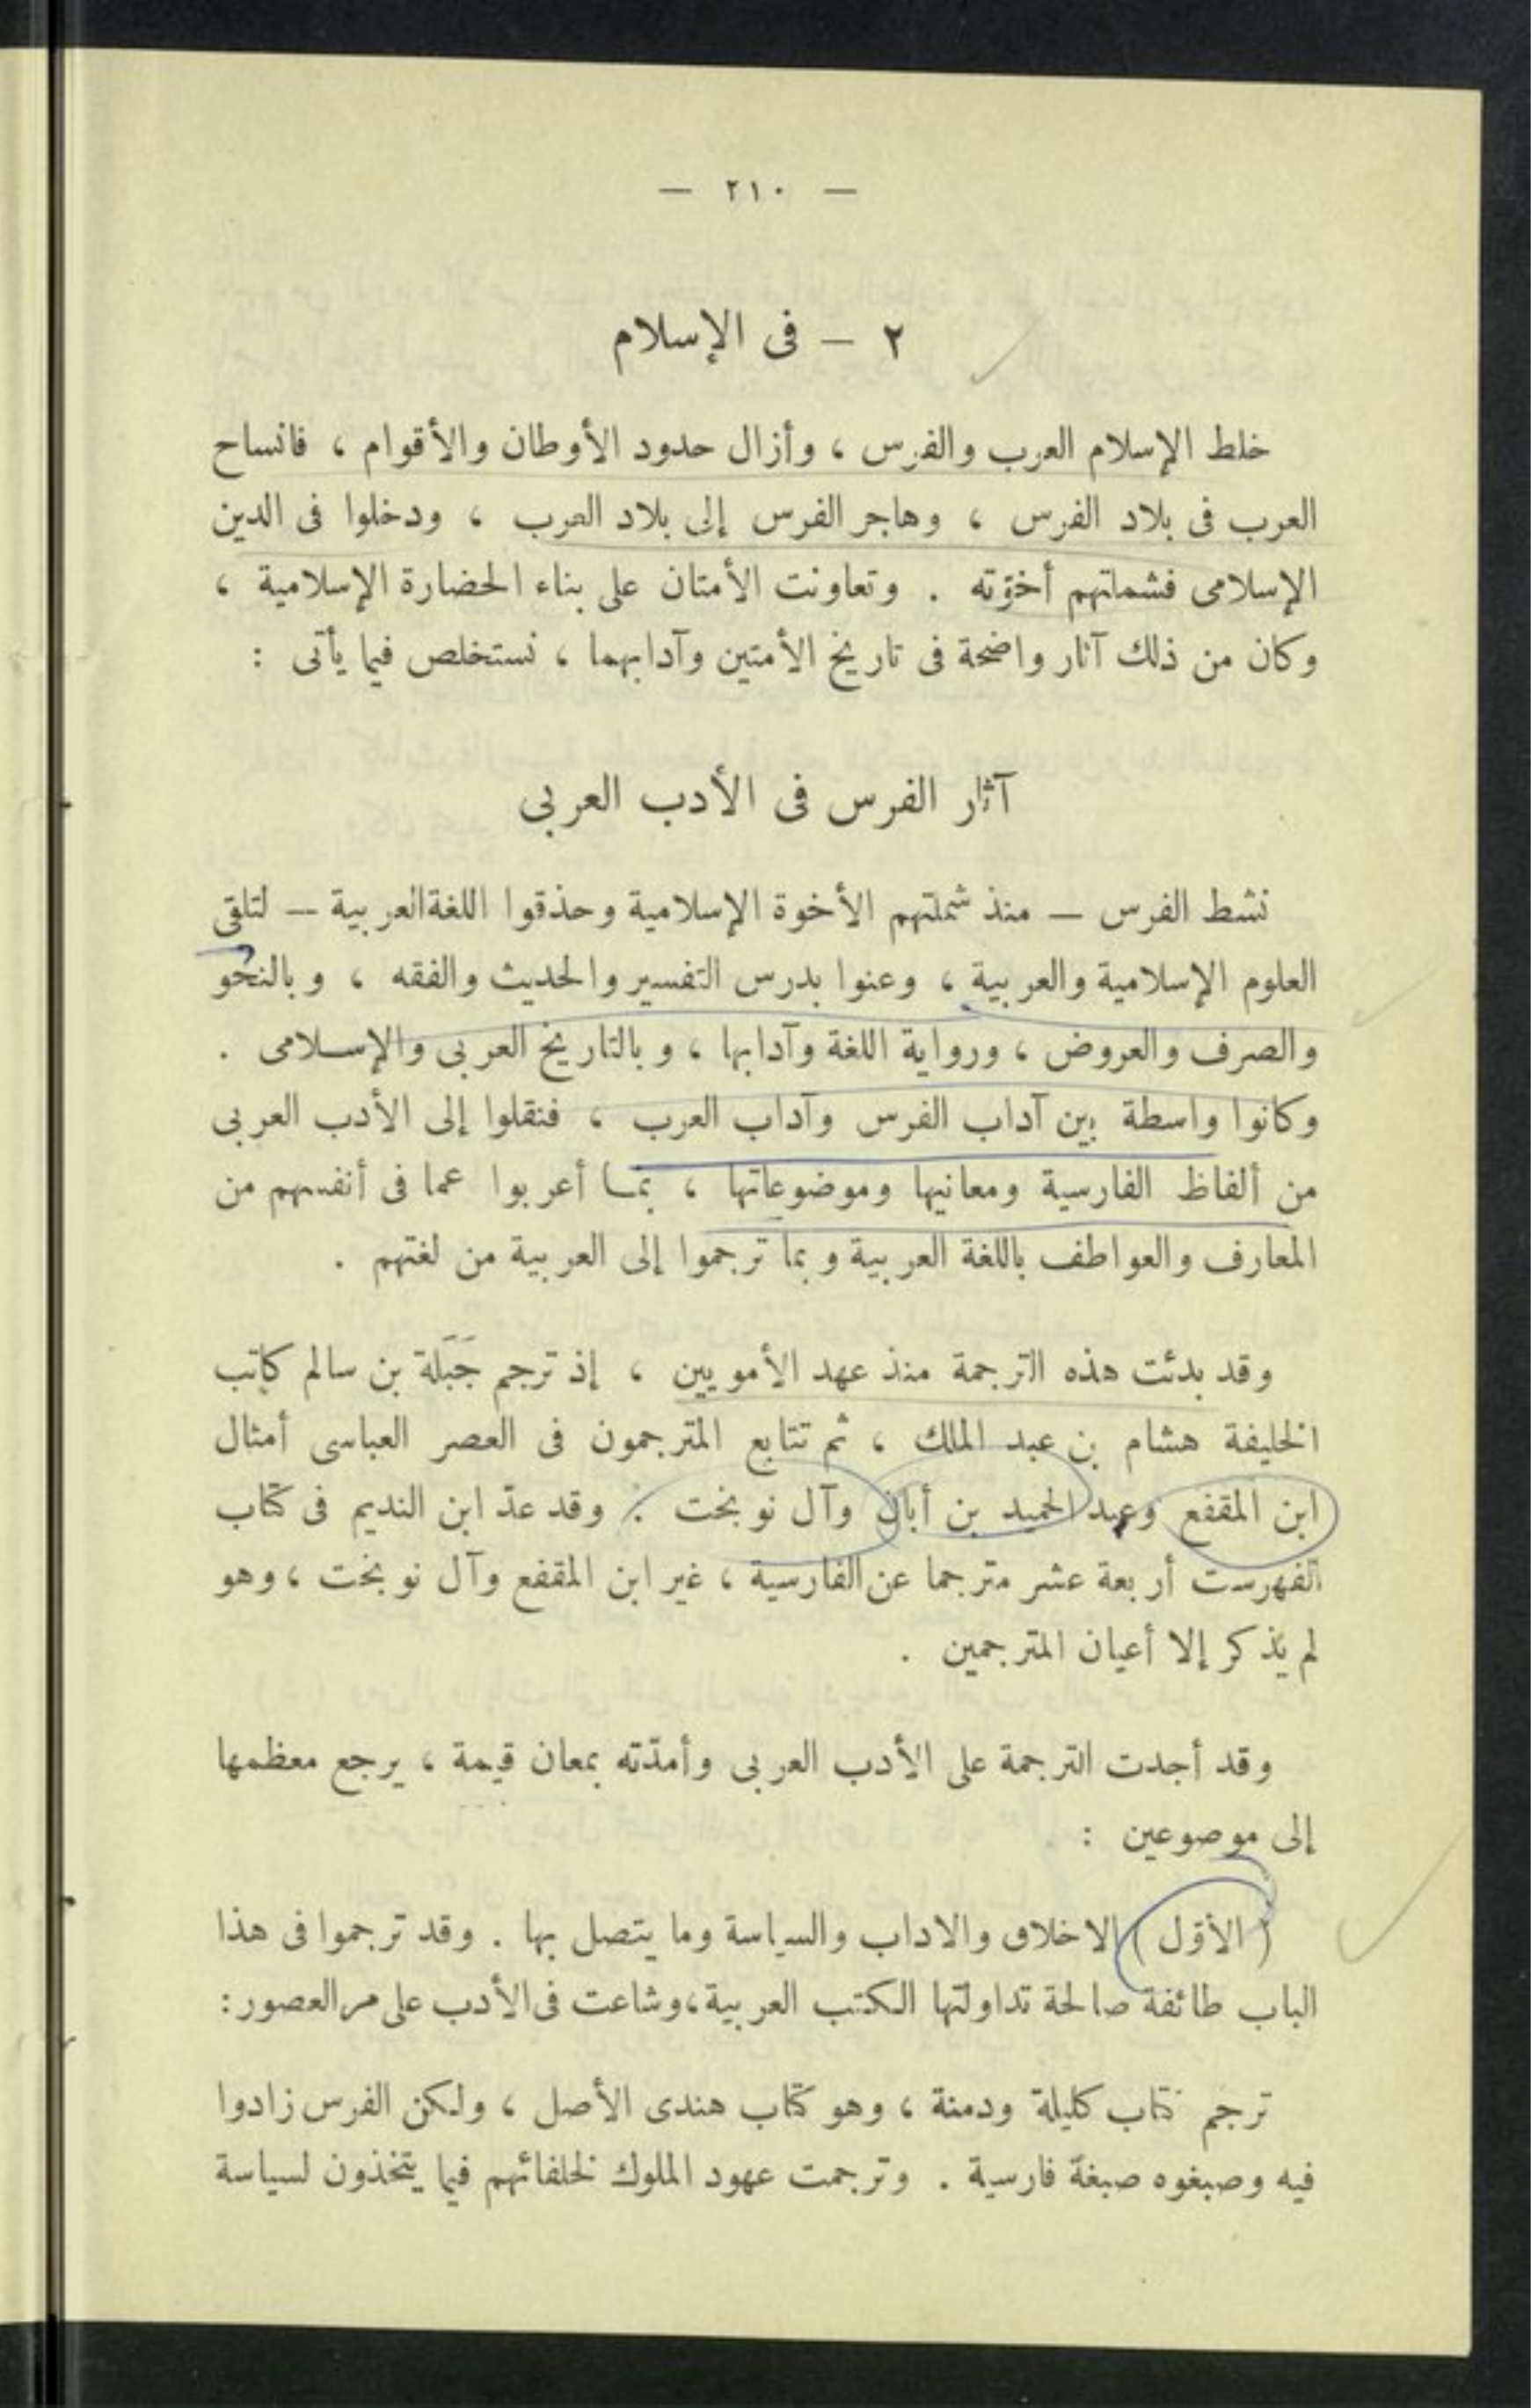 — ٢١٠ —
٢ — فى الإسلام
خلط الإسلام العرب والفرس ، وأزال حدود الأوطان والأقوام ، فانساح
العرب فى بلاد الفرس ، وهاجر الفرس إلى بلاد العرب ، ودخلوا فى الدين
الإسلامى فشملتهم أخوّته . وتعاونت الأمتان على بناء الحضارة الإسلامية ،
وكان من ذلك آثار واضحة فى تاريخ الأمتين وآدابهما ، نستخلص فيما يأتى :
آثار الفرس فى الأدب العربى
نشط الفرس — منذ شملتهم الأخوة الإسلامية وحذقوا اللغة العربية — لتلقى
العلوم الإسلامية والعربية ، وعنوا بدرس التفسير والحديث والفقه ، وبالنحو
والصرف والعروض ، ورواية اللغة وآدابها ، وبالتاريخ العربى والإسلامى .
وكانوا واسطة بين آداب الفرس وآداب العرب ، فنقلوا إلى الأدب العربى
من ألفاظ الفارسية ومعانيها وموضوعاتها ، بما أعربوا عما فى أنفسهم من
المعارف والعواطف باللغة العربية وبما ترجموا إلى العربية من لغتهم .
وقد بدئت هذه الترجمة منذ عهد الأمويين ، إذ ترجم جَبَلة بن سالم كاتب
الخليفة هشام بن عبد الملك ، ثم تتابع المترجمون فى العصر العباسى أمثال
ابن المقفع وعبد الحميد بن أبان وآل نوبخت . وقد عدّ ابن النديم فى كتاب
الفهرست أربعة عشر مترجما عن الفارسية ، غير ابن المقفع وآل نوبخت ، وهو
لم يذكر إلا أعيان المترجمين .
وقد أجدت الترجمة على الأدب العربى وأمدّته بمعان قيمة ، يرجع معظمها
إلى موضوعين :
( الأوّل ) الاخلاق والاداب والسياسة وما يتصل بها . وقد ترجموا فى هذا
الباب طائفة صالحة تداولتها الكتب العربية ، وشاعت فى الأدب على مر العصور :
ترجم كتاب كليلة ودمنة ، وهو كتاب هندى الأصل ، ولكن الفرس زادوا
فيه وصبغوه صبغة فارسية . وترجمت عهود الملوك لخلفائهم فيما يتخذون لسياسة